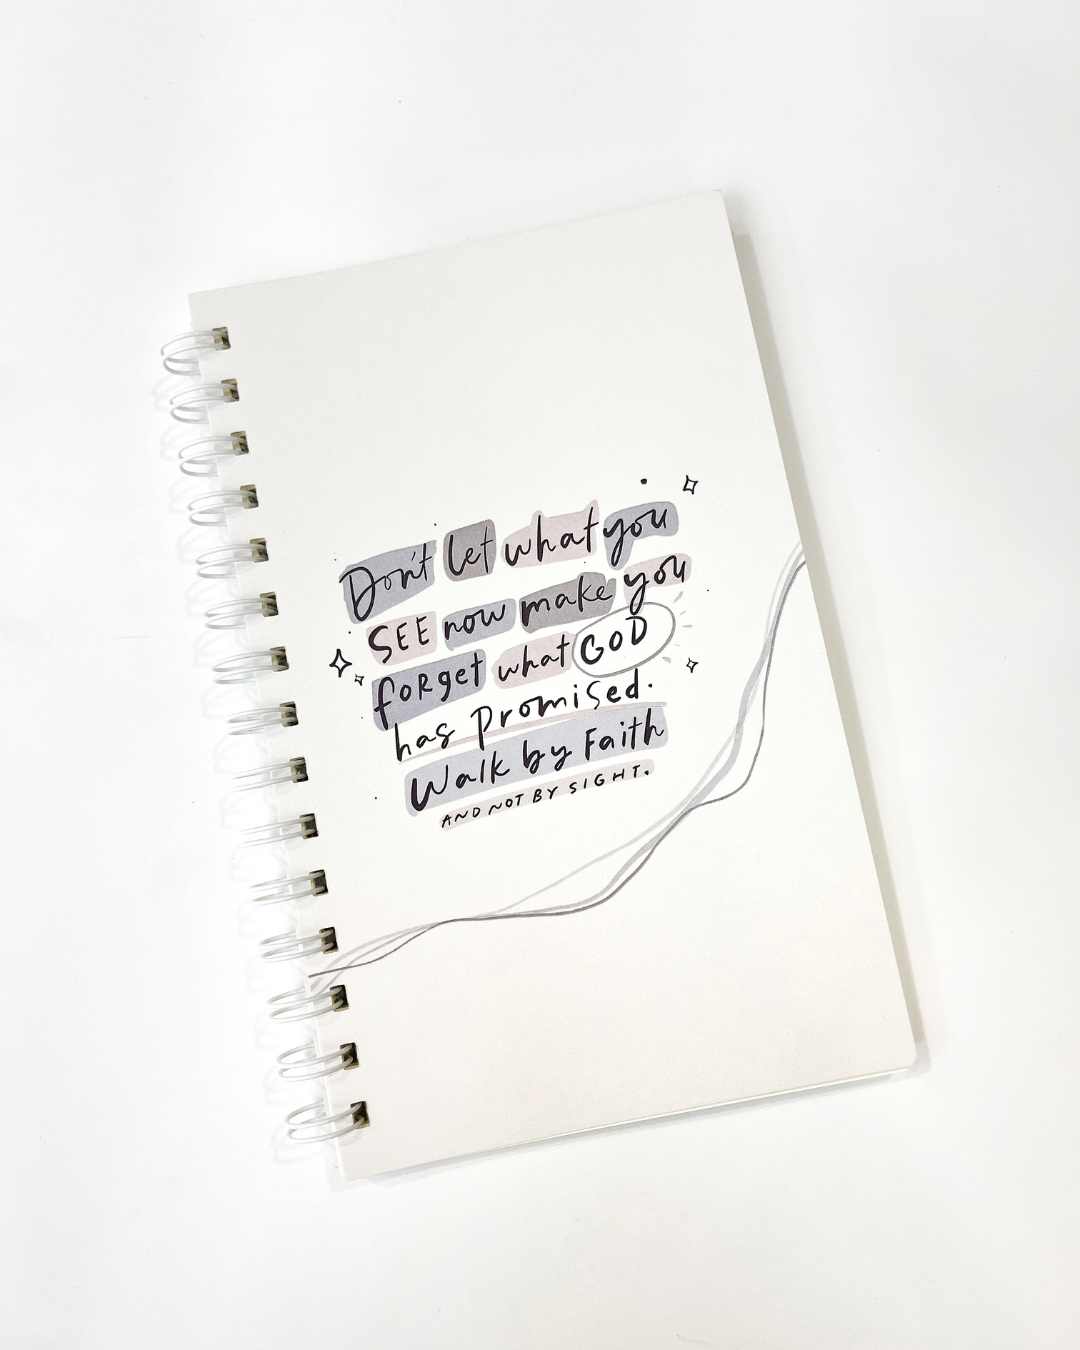 Don't let what you
SEE now make you
forget what GOD
has Promised.
Walk by Faith
AND NOT BY SIGHT.